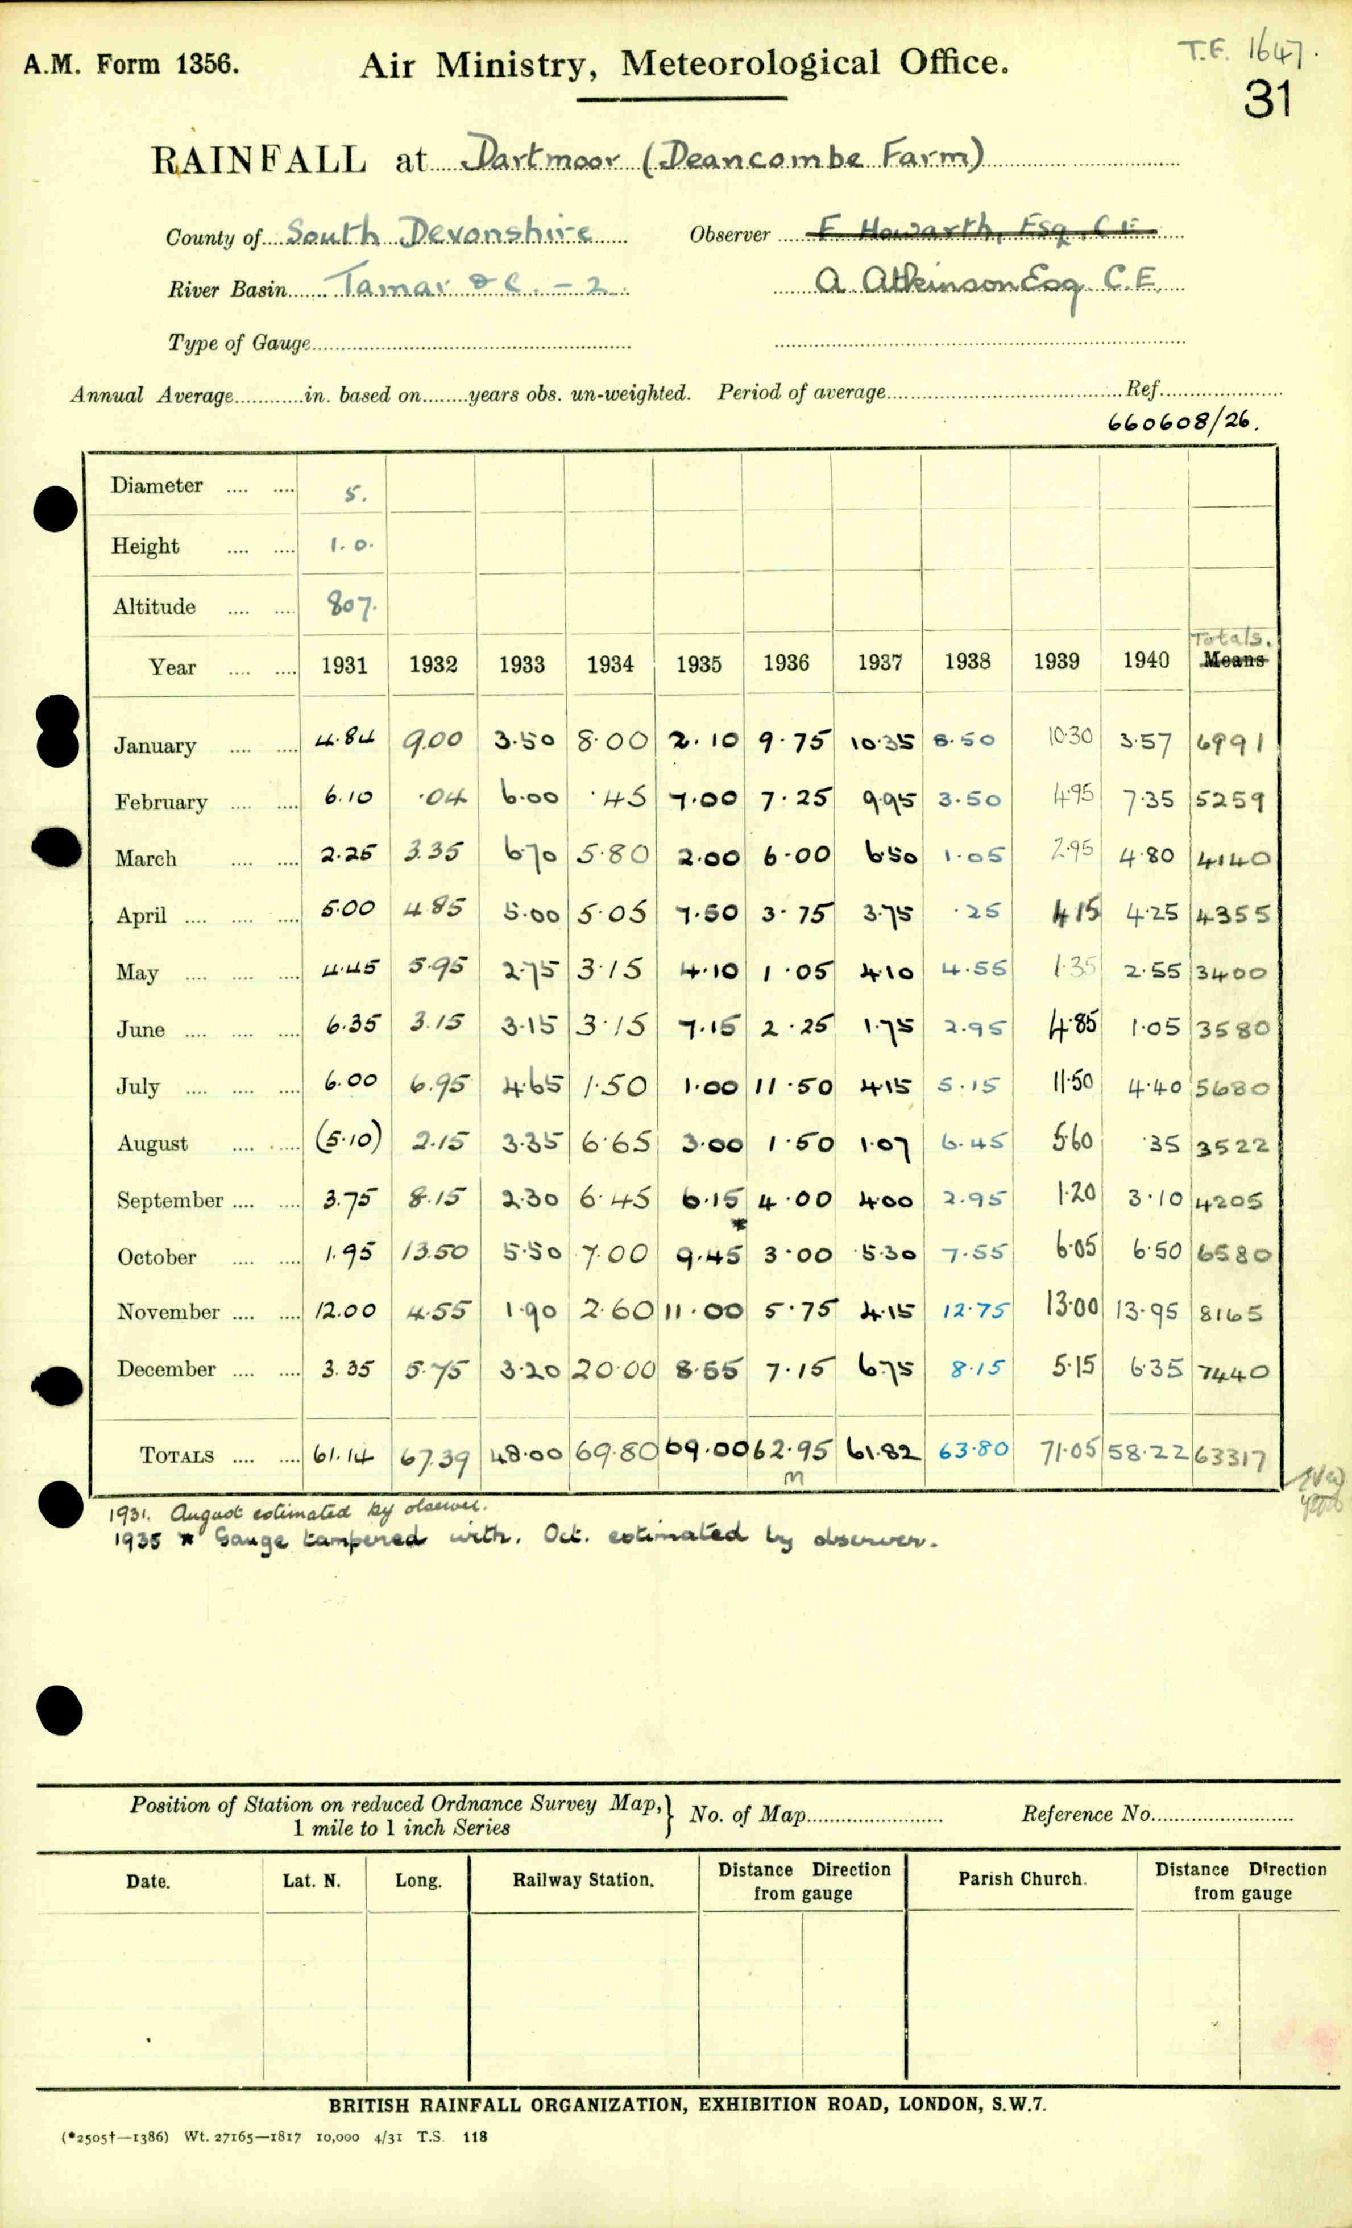 T.F. 1647.
A.M. Form 1356. Air Ministry, Meteorological Office.
31
RAINFALL at Dartmoor (Deancombe Farm)
County of South Devonshire Observer F. Howarth, Esq. C.E.
River Basin Tamar &c. - 2. A Atkinson Esq C.E.
Type of Gauge
Annual Average in. based on years obs. un-weighted. Period of average Ref.
660608/26.
Diameter 5.
Height 1.0.
Altitude 807.
Totals.
Year 1931 1932 1933 1934 1935 1936 1937 1938 1939 1940 Means
January 4.84 9.00 3.50 8.00 2.10 9.75 10.35 8.50 10.30 3.57 6991
February 6.10 .04 6.00 .45 7.00 7.25 9.95 3.50 4.95 7.35 5259
March 2.25 3.35 6.70 5.80 2.00 6.00 6.50 1.05 2.95 4.80 4140
April 5.00 4.85 5.00 5.05 7.50 3.75 3.75 .25 4.15 4.25 4355
May 4.45 5.95 2.75 3.15 4.10 1.05 4.10 4.55 1.35 2.55 3400
June 6.35 3.15 3.15 3.15 7.15 2.25 1.75 2.95 4.85 1.05 3580
July 6.00 6.95 4.65 1.50 1.00 11.50 4.15 5.15 11.50 4.40 5680
August (5.10) 2.15 3.35 6.65 3.00 1.50 1.07 6.45 5.60 .35 3522
September 3.75 8.15 2.30 6.45 6.15 4.00 4.00 2.95 1.20 3.10 4205
October 1.95 13.50 5.50 7.00 9.45* 3.00 5.30 7.55 6.05 6.50 6580
November 12.00 4.55 1.90 2.60 11.00 5.75 4.15 12.75 13.00 13.95 8165
December 3.35 5.75 3.20 20.00 8.55 7.15 6.75 8.15 5.15 6.35 7440
TOTALS 61.14 67.39 48.00 69.80 69.00 62.95 61.82 63.80 71.05 58.22 63317
m
1931. August estimated by observer.
1935 * Gauge tampered with. Oct. estimated by observer.
Position of Station on reduced Ordnance Survey Map,} No. of Map Reference No.
1 mile to 1 inch Series
Date. Lat. N. Long. Railway Station. Distance Direction from gauge Parish Church. Distance Direction from gauge
BRITISH RAINFALL ORGANIZATION, EXHIBITION ROAD, LONDON, S.W.7.
(*2505†—1386) Wt. 27165—1817 10,000 4/31 T.S. 118